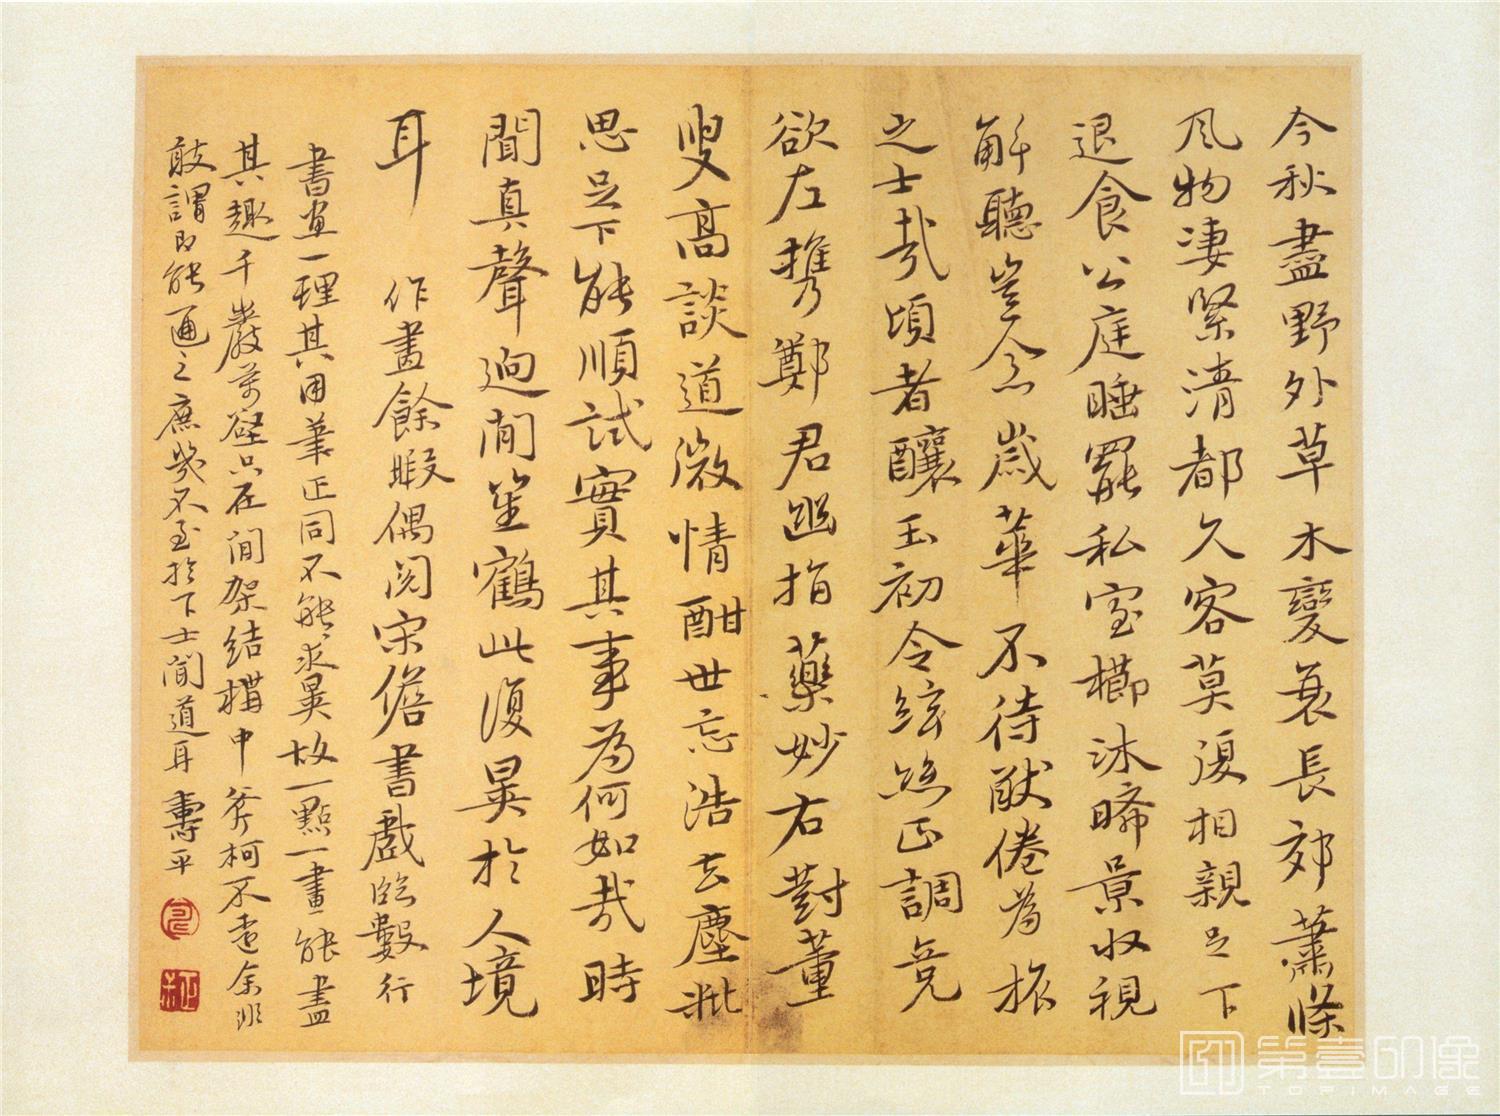 今秋盡野外草木變衰長郊蕭條
風物淒緊清都久客莫復相親足下
退食公庭睡罷私室櫛沐晞景收視
解聽豈念歲華不待猷倦為振
之士哉頃者釀玉初令絃絲正調竟
欲左攜鄭君邀指藥妙右對董
叟高談道微情酣世忘浩去塵粃
思足下能順試實其事為何如哉時
聞真聲迥聞笙鶴此復異於人境
耳 作畫餘暇偶閱宋儋書戲臨數行
書畫一理其用筆正同不能求異故一點一畫能盡
其趣千巖萬壑只在間架結構中斧柯不遠余非
敢謂即能通之庶幾不至於下士聞道耳 壽平
第壹印像
TOPIMAGE